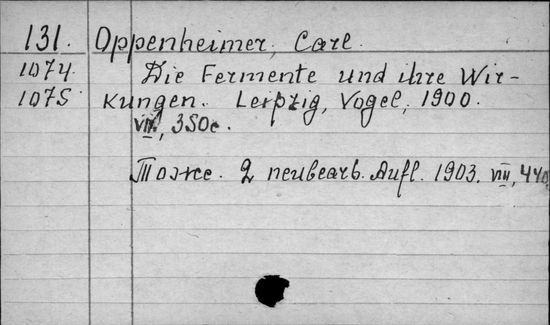 131. Oppenheimer, Carl.
1074 Die Fermente und ihre Wir-
1075 kungen. Leipzig, Vogel, 1900.
VIII, 350 с.
Тоже. 2 neubearb. Aufl. 1903. VIII, 440